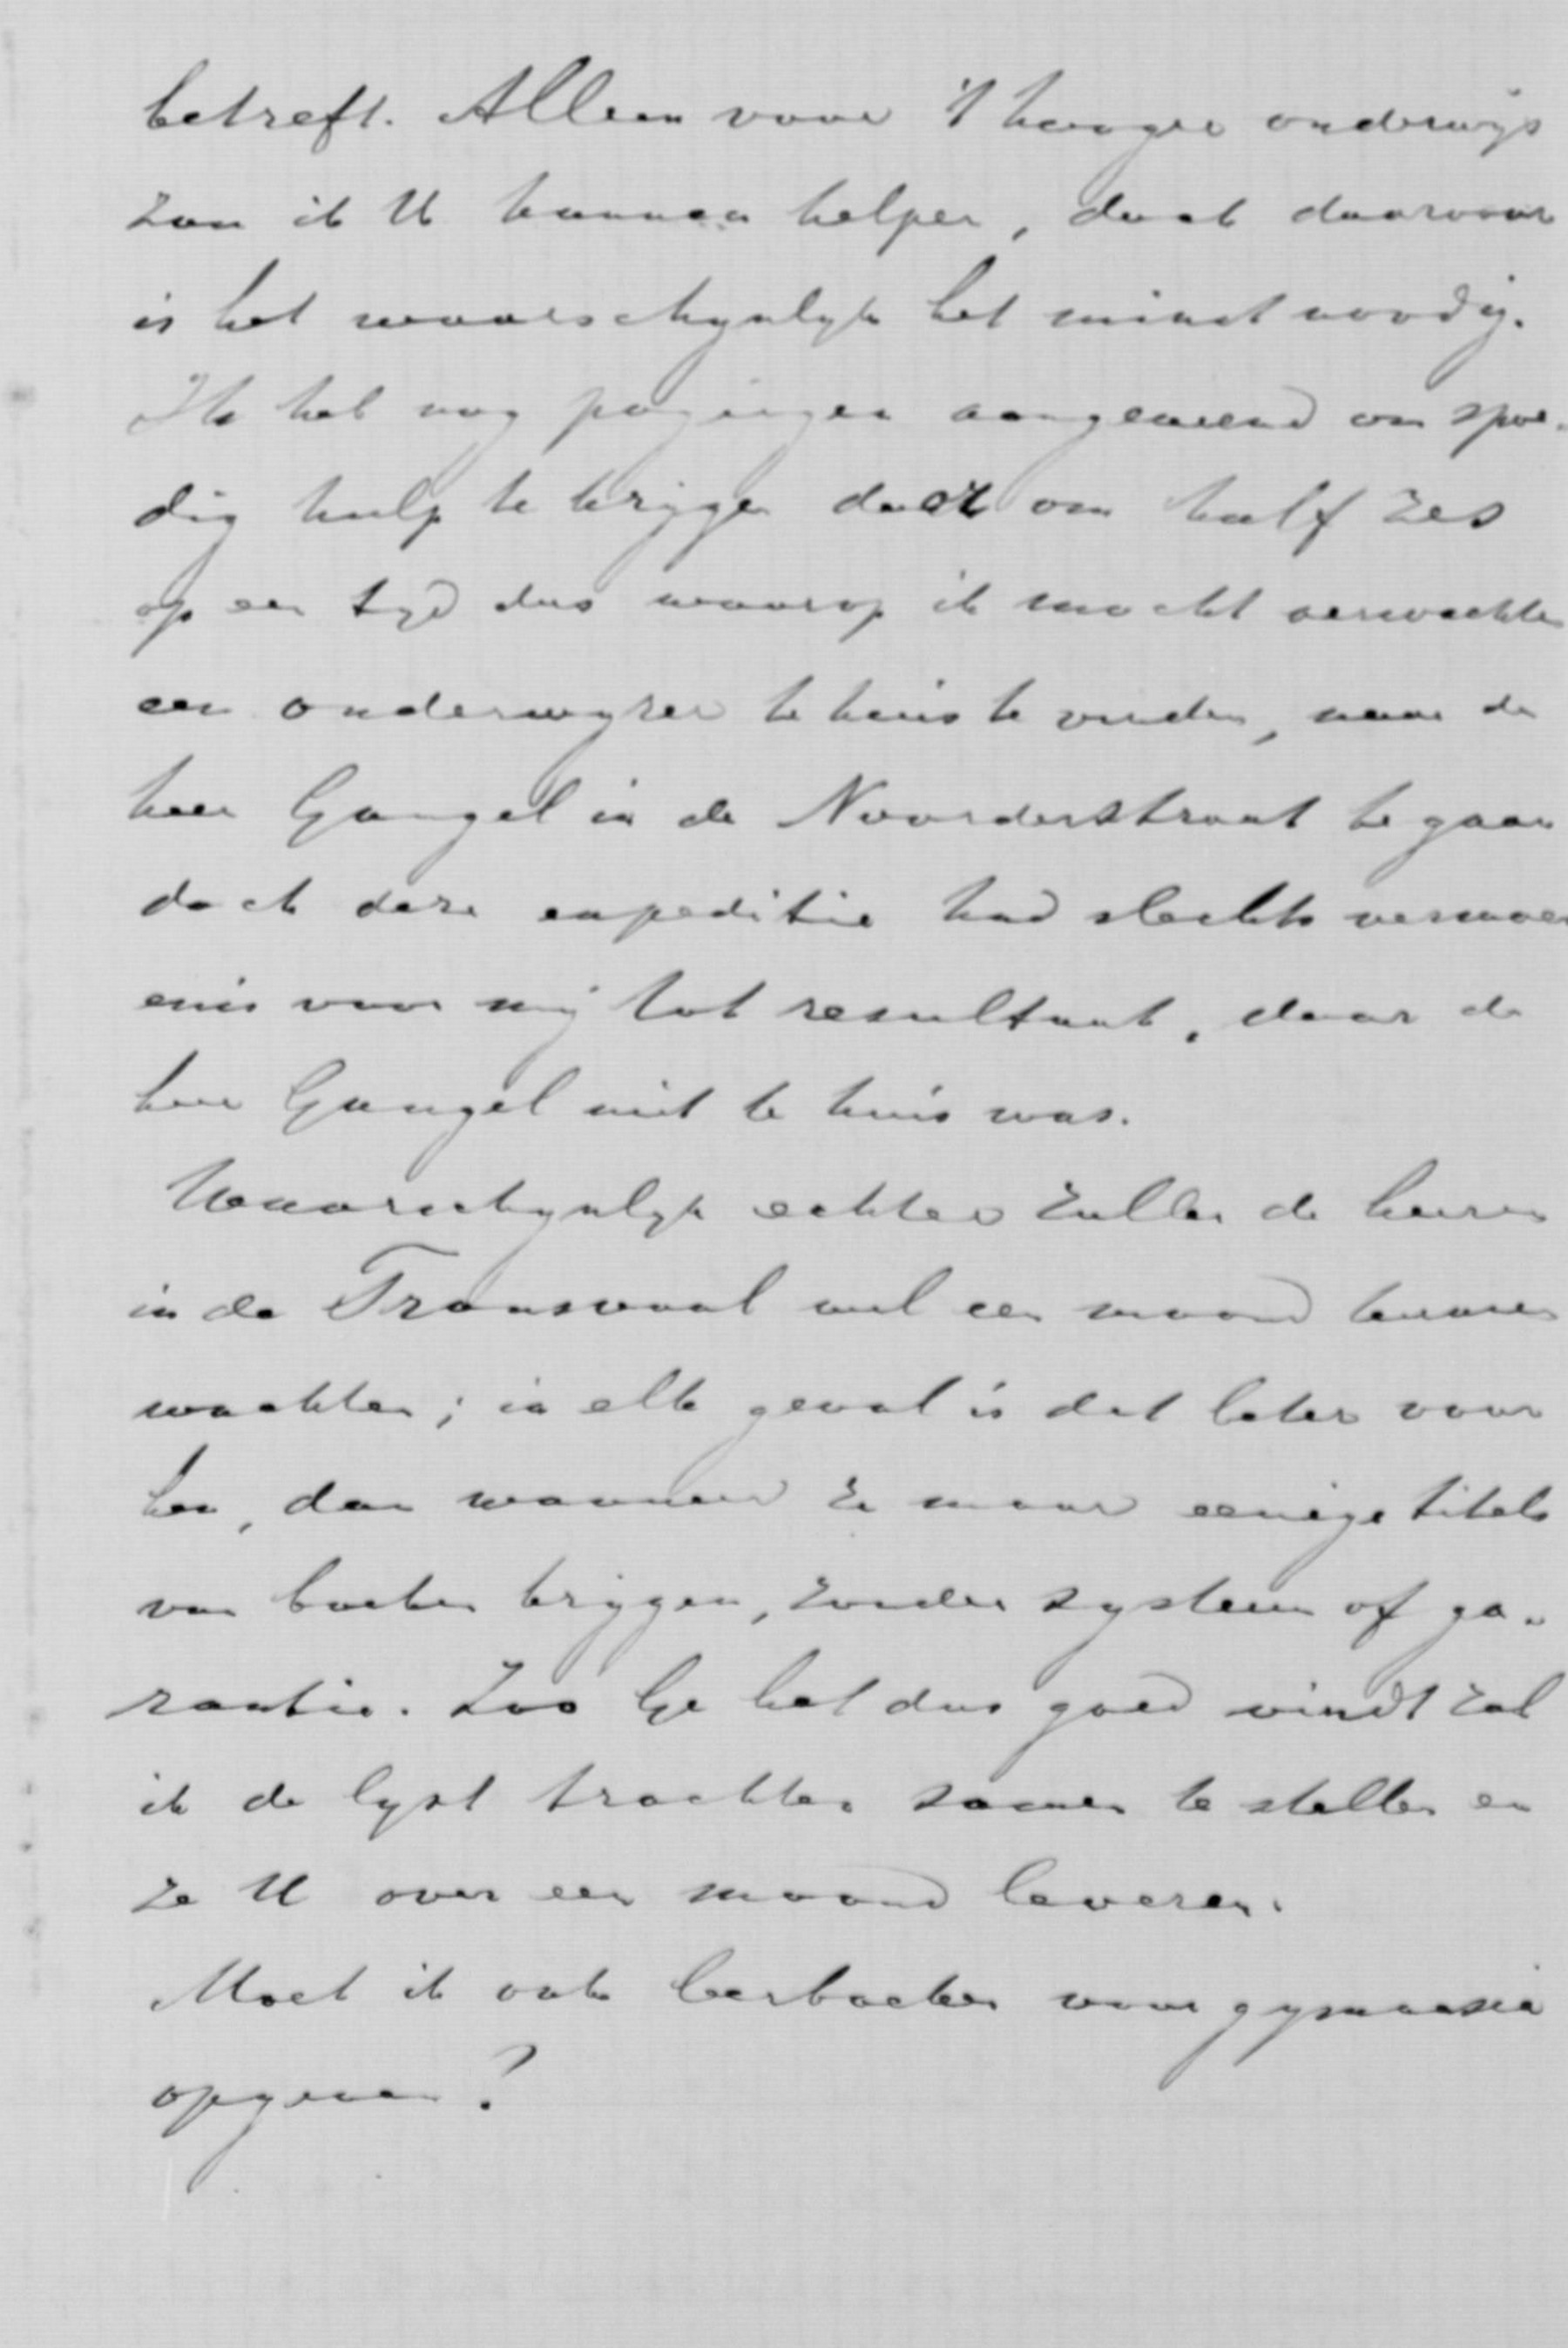 betreft. Alleen voor 't hooger onderwijs
zou ik U kunnen helpen, doch daarvoor
is het waarschynlyk het minst noodig.
Ik heb nog pogingen aangewend om spoe-
dig hulp te krygen door om half zes
op een tyd dus waarop ik mocht verwachten
een onderwyzer te huis te vinden, naar de
heer Gangel in de Noorderstraat te gaan
doch deze expeditie had slechts vermoei
enis voor mij tot resultaat, daar de
heer Gangel niet te huis was.
Waarschynlyk echter zullen de heeren
in de Transvaal wel een maand kunnen
wachten; in elk geval is dat beter voor
hen, dan wanneer ze maar eenige titels
van boeken krygen, zonder systeem of ga-
rantie. Zoo Ge het dus goed vindt zal
ik de lyst trachten samen te stellen en
ze U over een maand leveren.
Moet ik ook leerboeken voor gymnasia
opgeven?